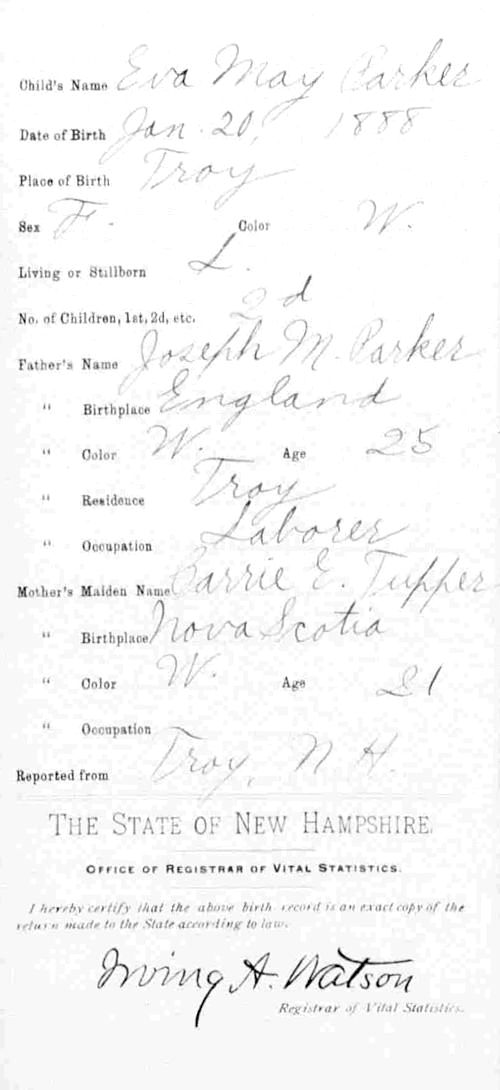 Child's Name Eva May Parker
Date of Birth Jan. 20, 1888
Place of Birth Troy
Sex F. Color W.
Living or Stillborn L.
No. of Children, 1st, 2d, etc. 2d
Father's Name Joseph M. Parker
" Birthplace England
" Color W. Age 25
" Residence Troy
" Occupation Laborer
Mother's Maiden Name Carrie E. Tupper
" Birthplace Nova Scotia
" Color W. Age 21
" Occupation
Reported from Troy, N H.
THE STATE OF NEW HAMPSHIRE.
OFFICE OF REGISTRAR OF VITAL STATISTICS.
I hereby certify that the above birth record is an exact copy of the
return made to the State according to law.
Irving A. Watson
Registrar of Vital Statistics.